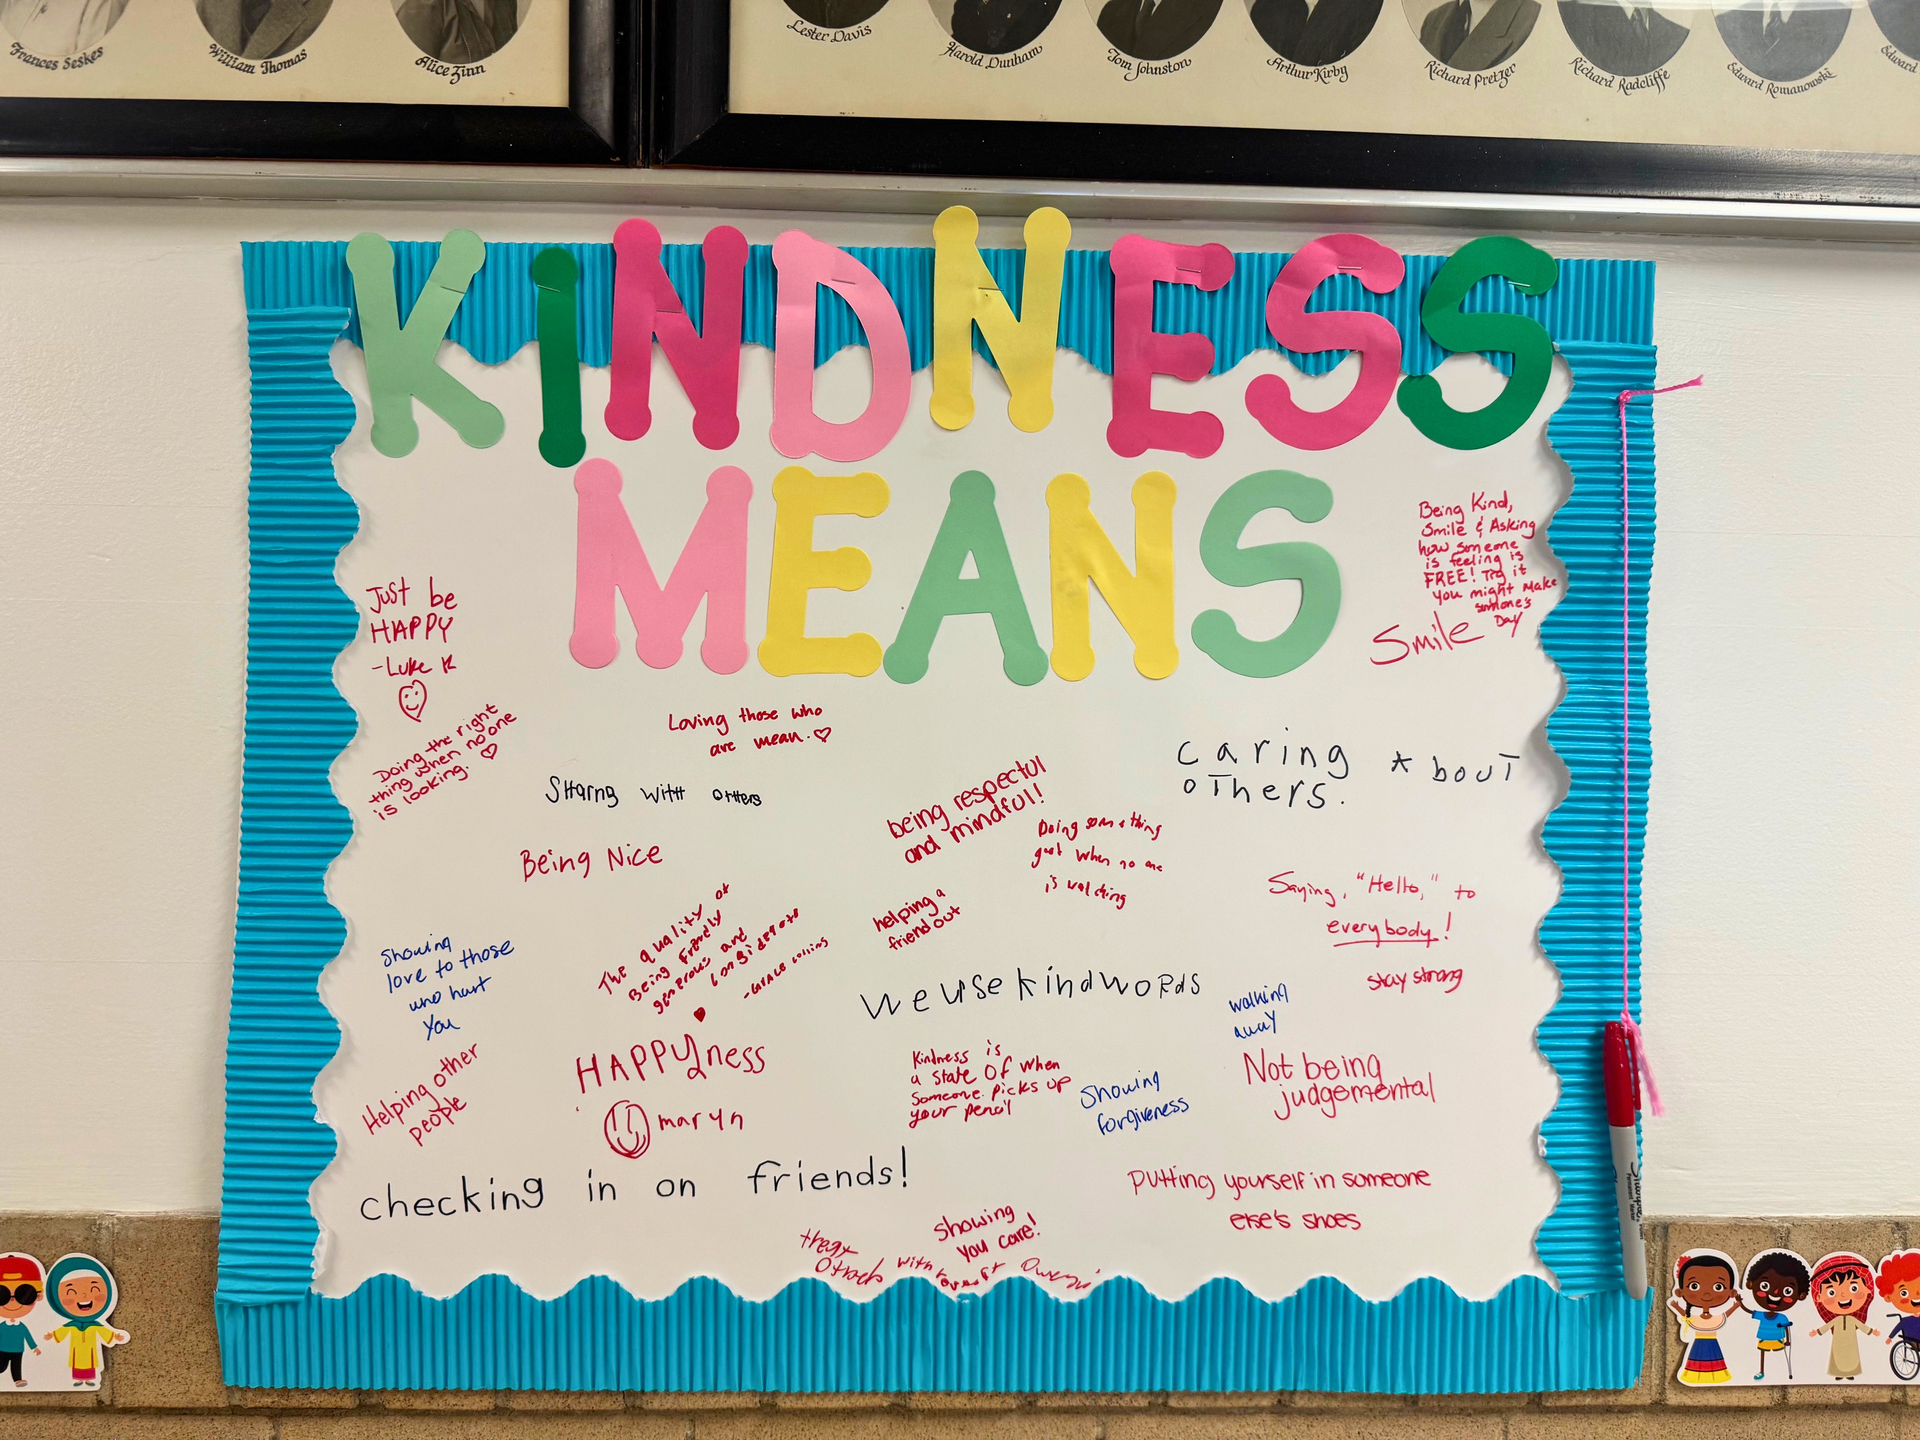 Frances Seskes
William Thomas
Alice Zinn
Lester Davis
Harold Dunham
Tom Johnston
Arthur Kirby
Richard Pretzer
Richard Radcliffe
Edward Romanowski
Edward
KiNDNESS
MEANS
Being Kind,
Smile & Asking
how someone
is feeling is
FREE! Try it
you might make
someone's
Day
Smile
Just be
HAPPY
-Luke K
Doing the right
thing when no one
is looking.
Loving those who
are mean.
SHarng witH otHers
caring *bouT
oThers.
being respectul
and mindful!
Being Nice
Doing something
when no one
is watching
Saying, "Hello," to
everybody!
stay strong
helping a
friend out
The quality of
Being Friendly
generous and
considerate
-Grace Collins
showing
love to those
who hurt
you
we use kind words
walking
away
HAPPYness
maryn
Kindness is
a state of when
someone picks up
your pencil
Showing
forgiveness
Not being
judgemental
Helping other
people
checking in on friends!
Putting yourself in someone
else's shoes
showing
you care!
treat
Others with
Sharpie